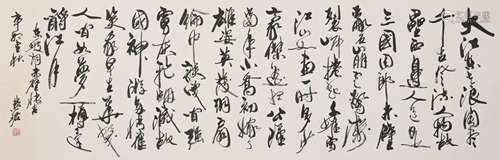 大江東去浪淘盡
千古風流人物故
壘西邊人道是
三國周郎赤壁
亂石崩雲驚濤
裂岸捲起千堆雪
江山如畫一時多少
豪傑遙想公瑾
當年小喬初嫁了
雄姿英發羽扇
綸巾談笑間強
虜灰飛煙滅故
國神遊多情應
笑我早生華髮
人間如夢一樽還
酹江月
東坡詞赤壁懷古